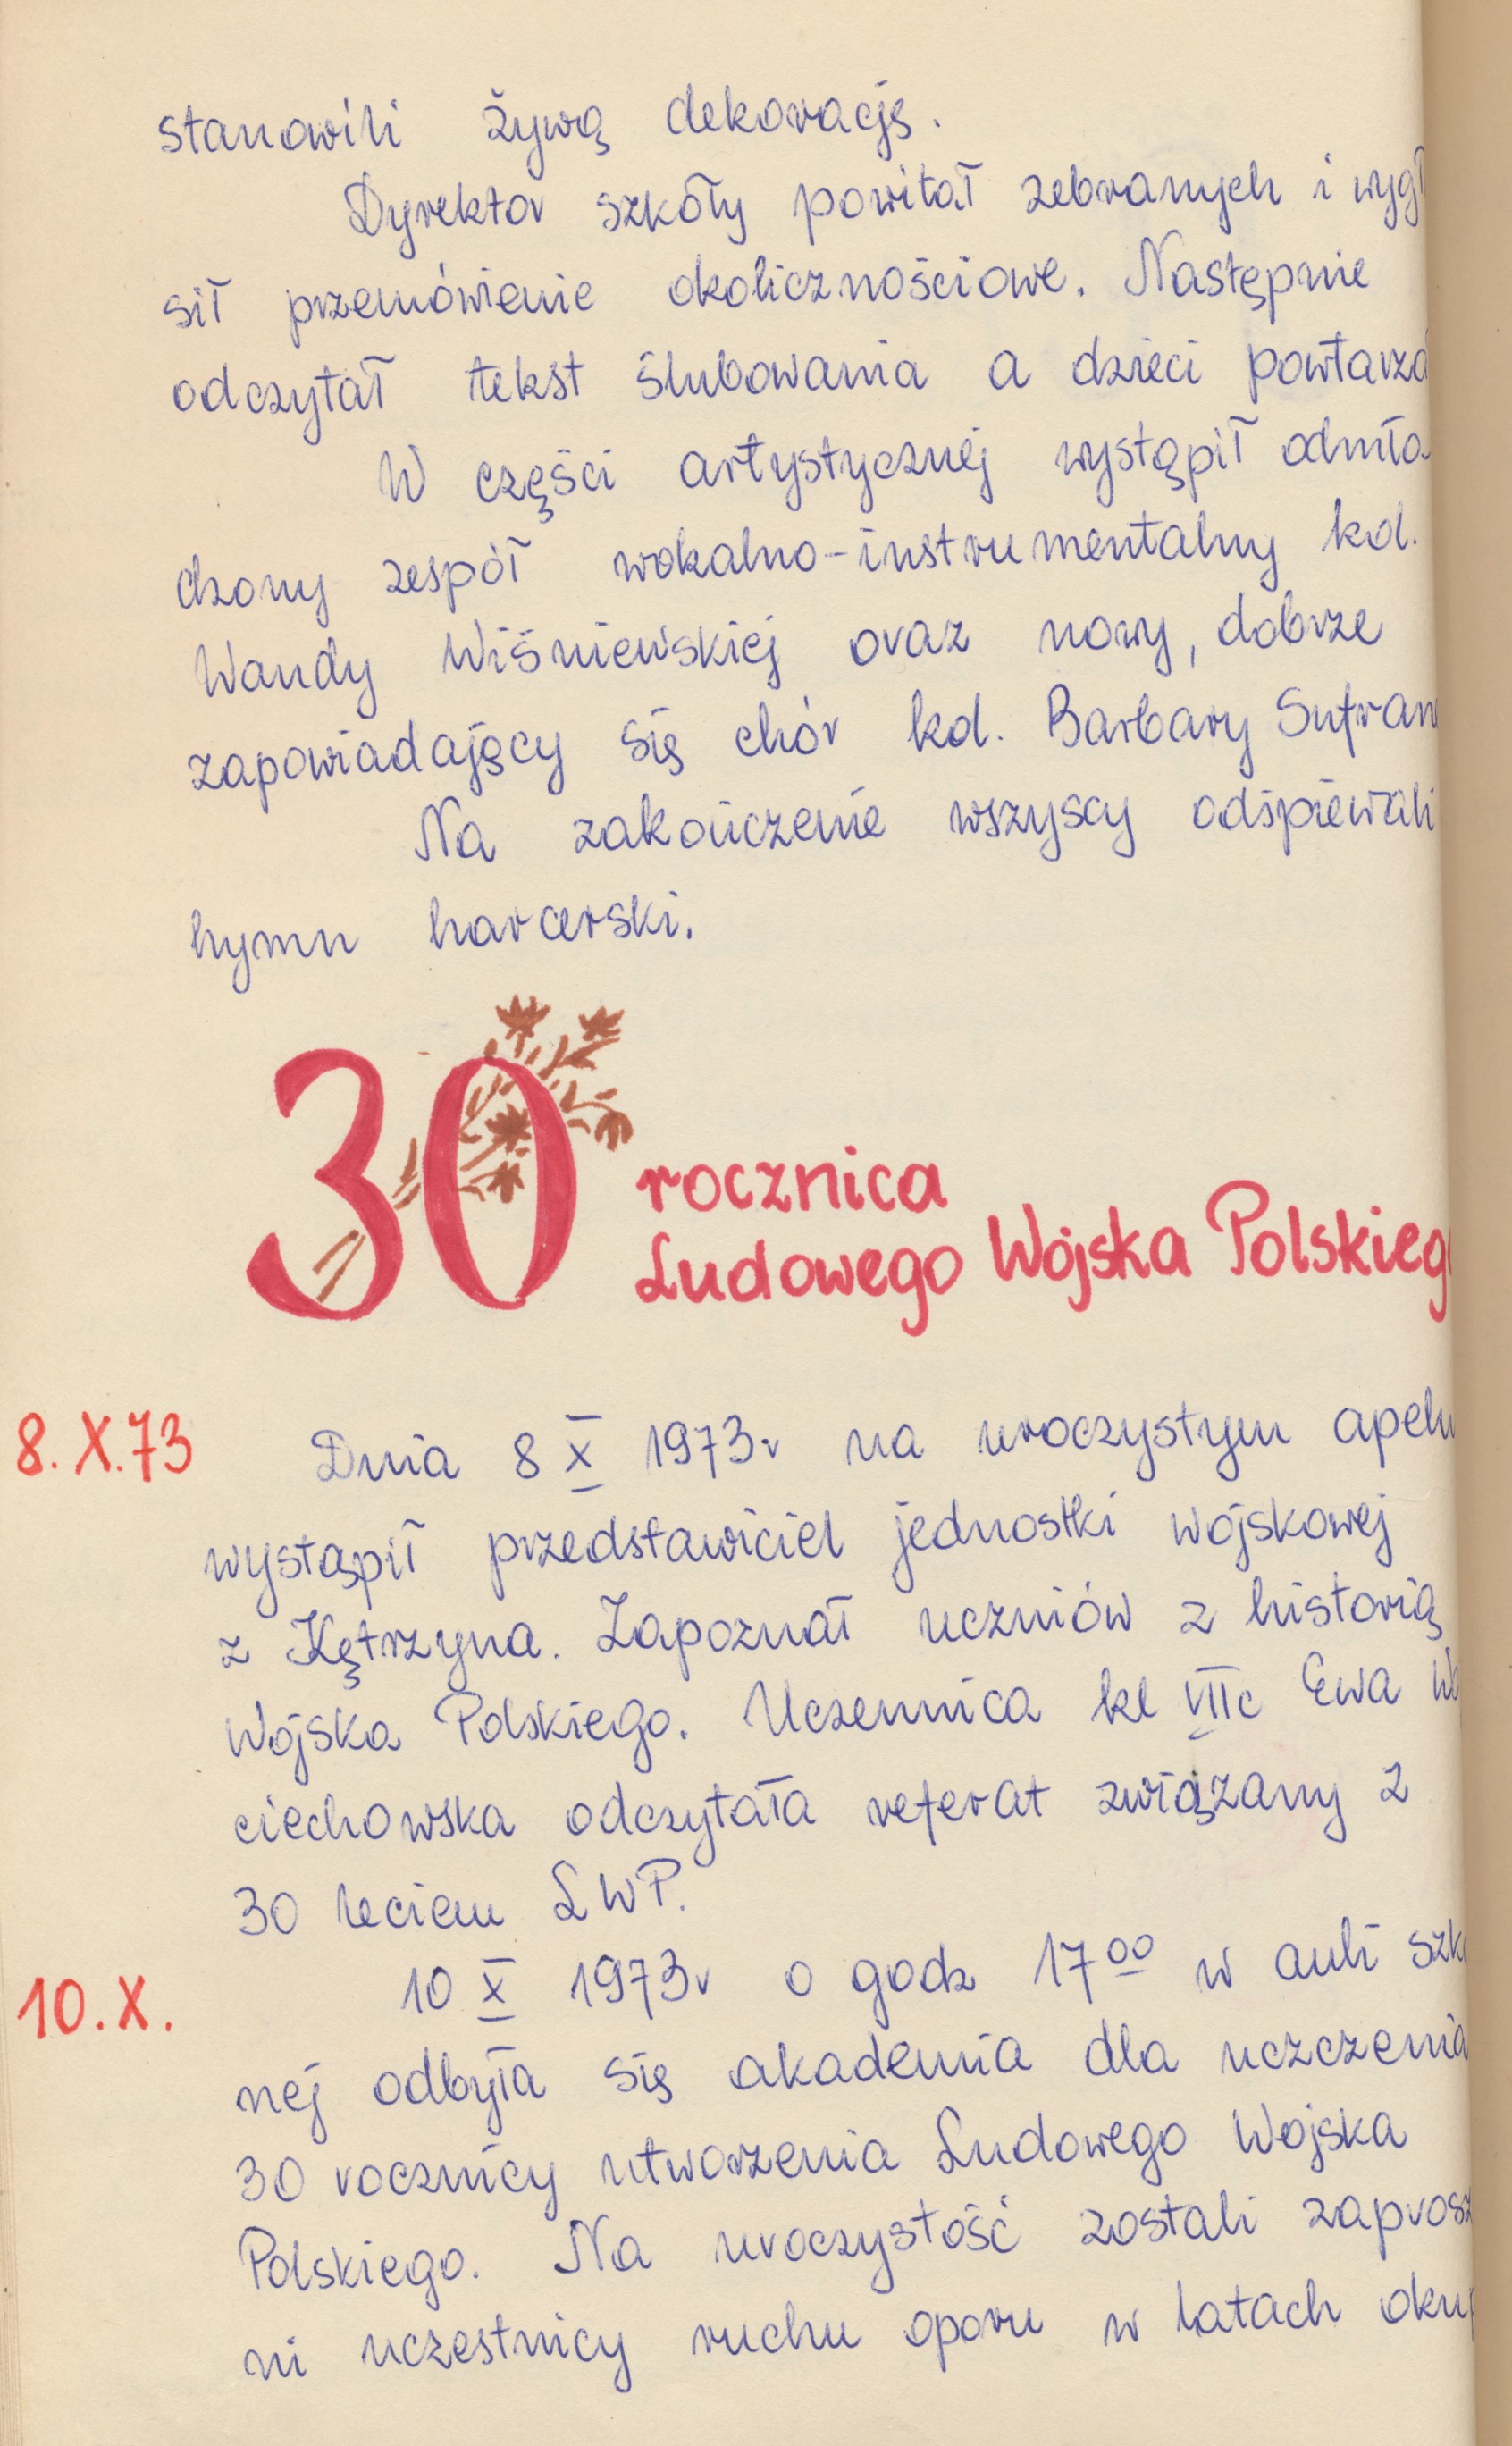 stanowili żywą dekorację.
Dyrektor szkóły powitał zebranych i wygł
sił przemówienie okolicznościowe. Następnie
odczytał tekst ślubowania a dzieci powtarza
W części artystycznej wystąpił odmło
dzony zespół wokalno-instrumentalny kol.
Wandy Wiśniewskiej oraz nowy, dobrze
zapowiadający się chór kol. Barbary Sufran
Na zakończenie wszyscy odśpiewali
hymn harcerski.
30 rocznica
Ludowego Wojska Polskiego
8.X.73
Dnia 8 X 1973r na uroczystym apelu
wystąpił przedstawiciel jednostki wojskowej
z Kętrzyna. Zapoznał uczniów z historią
Wojska Polskiego. Uczennica kl VIIc Ewa Wo
ciechowska odczytała referat związany z
30 leciem LWP.
10.X.
10 X 1973r o godz 17⁰⁰ w auli szko
nej odbyła się akademia dla uczczenia
30 rocznicy utworzenia Ludowego Wojska
Polskiego. Na uroczystość zostali zaprosz
ni uczestnicy ruchu oporu w latach okup